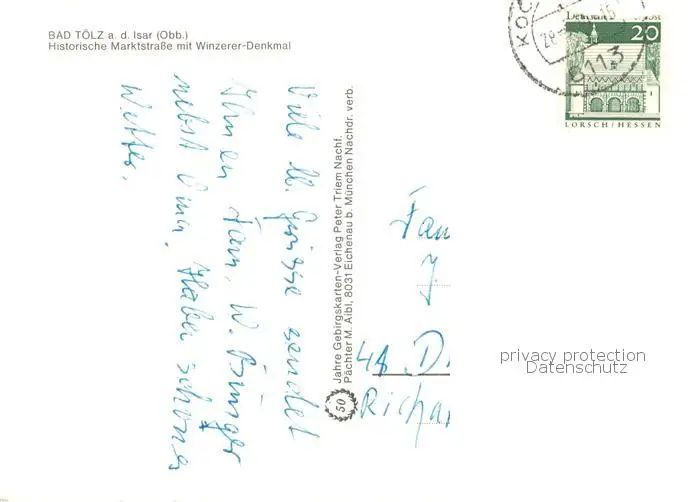 BAD TÖLZ a. d. Isar (Obb.)
Historische Marktstraße mit Winzerer-Denkmal
Viele ll. Grüsse sendet
Ihnen Fam. W. Bürger
nebst Oma. Haben schönes
Wetter.
Jahre Gebirgskarten-Verlag Peter Triem Nachf.
Pächter M. Aibl, 8031 Eichenau b. München Nachdr. verb.
50
KOC
28
6113
Deutsche Post
20
LORSCH/HESSEN
Fam
J.
48 D
Richa
privacy protection
Datenschutz